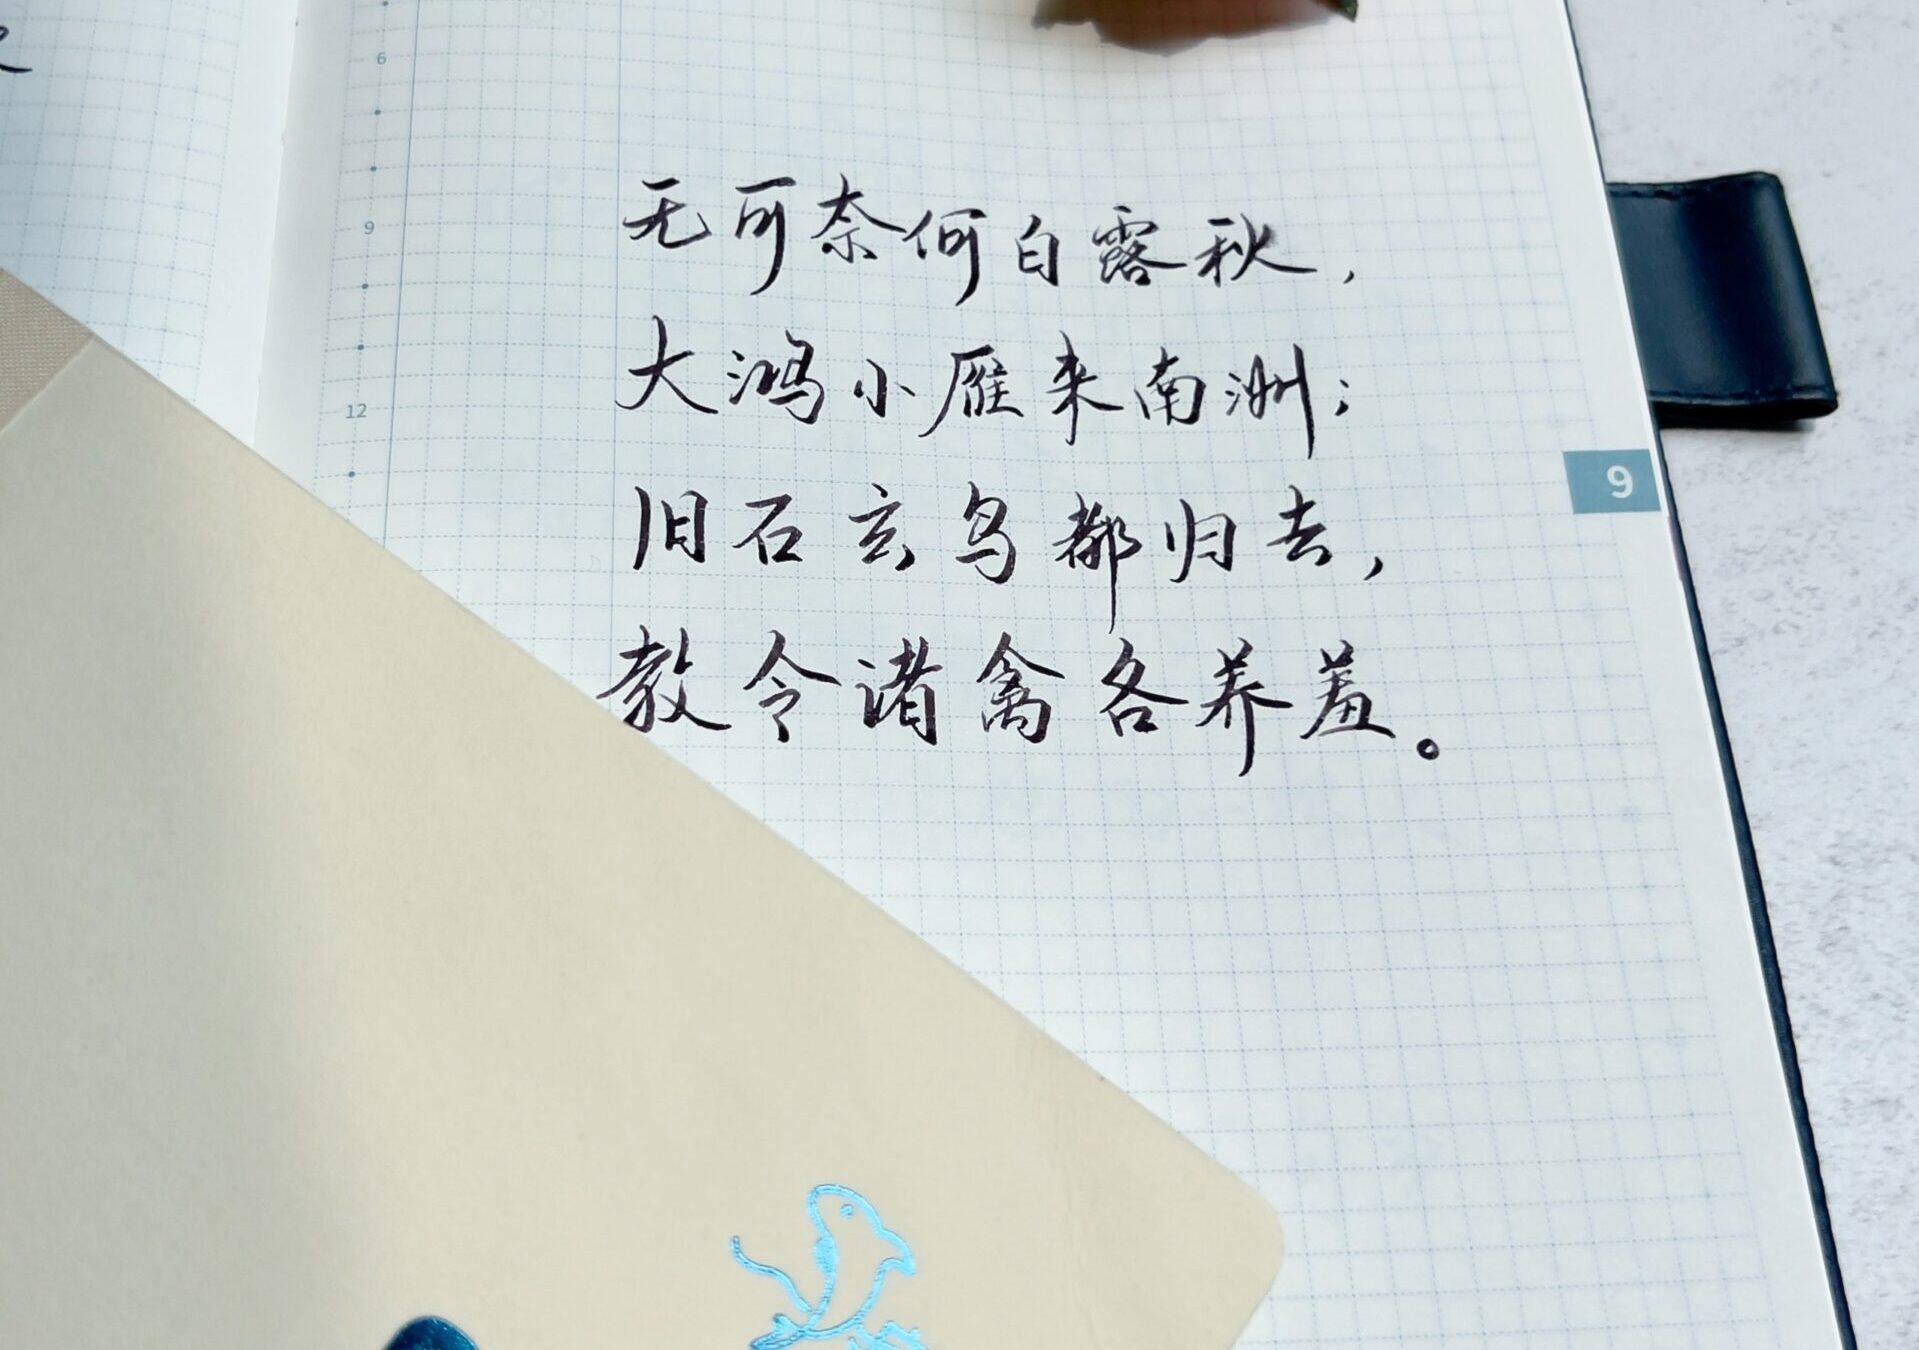 6
9
12
无可奈何白露秋，
大鸿小雁来南洲；
旧石玄鸟都归去，
教令诸禽各养羞。
9